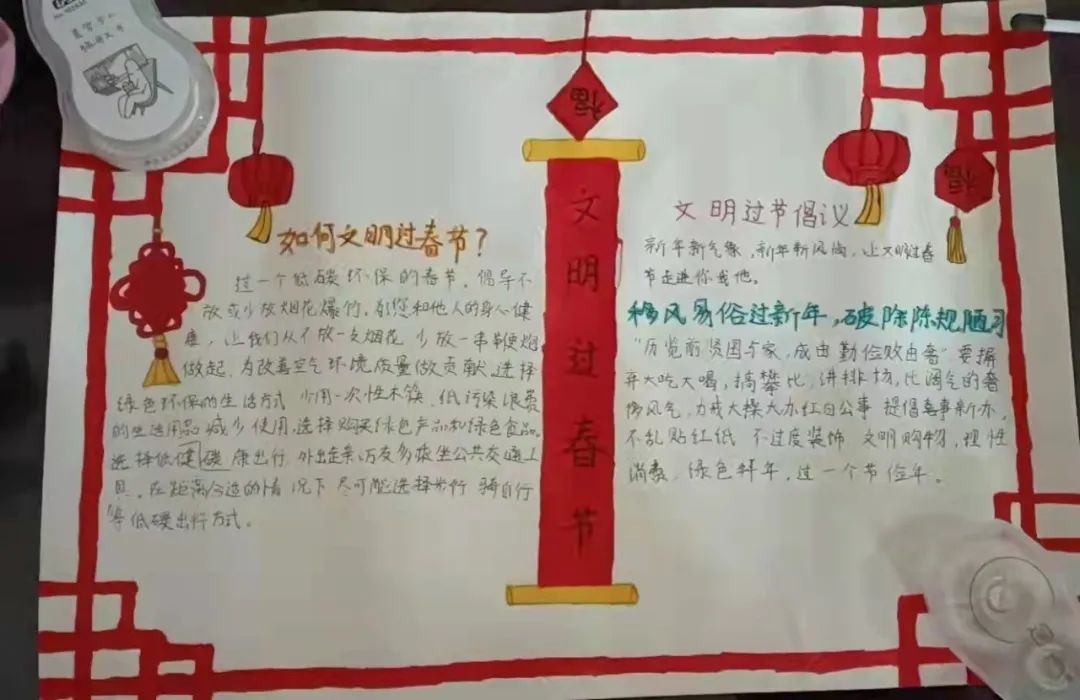 福
文明过春节
如何文明过春节？
过一个低碳环保的春节。倡导不
放或少放烟花爆竹，为您和他人的身心健
康，让我们从不放一支烟花 少放一串鞭炮
做起，为改善空气环境质量做贡献。选择
绿色环保的生活方式 少用一次性木筷、低污染浪费
的生活用品减少使用，选择购买绿色产品和绿色食品。
选择低健碳 康出行，外出走亲访友多乘坐公共交通工
具。在距离合适的情况下 尽可能选择步行 骑自行
等低碳出行方式。
文明过节倡议
新年新气象，新年新风尚，让文明过春
节走进你我他。
福
移风易俗过新年，破除陈规陋习
"历览前贤国与家，成由勤俭败由奢"要摒
弃大吃大喝，搞攀比，讲排场，比阔气的奢
侈风气，力戒大操大办红白公事 提倡喜事新办，
不乱贴红纸 不过度装饰 文明购物，理性
消费，绿色拜年，过一个节俭年。